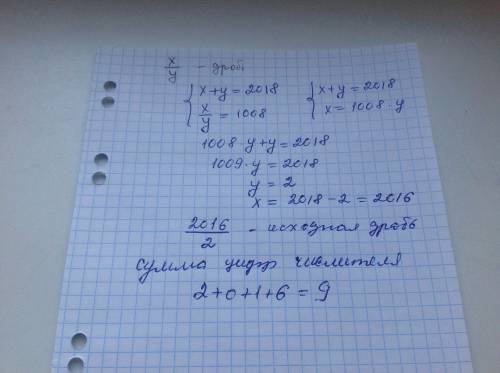 x/y – дробь
{ x+y=2018 { x+y=2018
{ x/y = 1008 { x= 1008·y
1008·y+y=2018
1009·y=2018
y=2
x = 2018-2=2016
2016/2 - исходная дробь
сумма цифр числителя
2+0+1+6=9